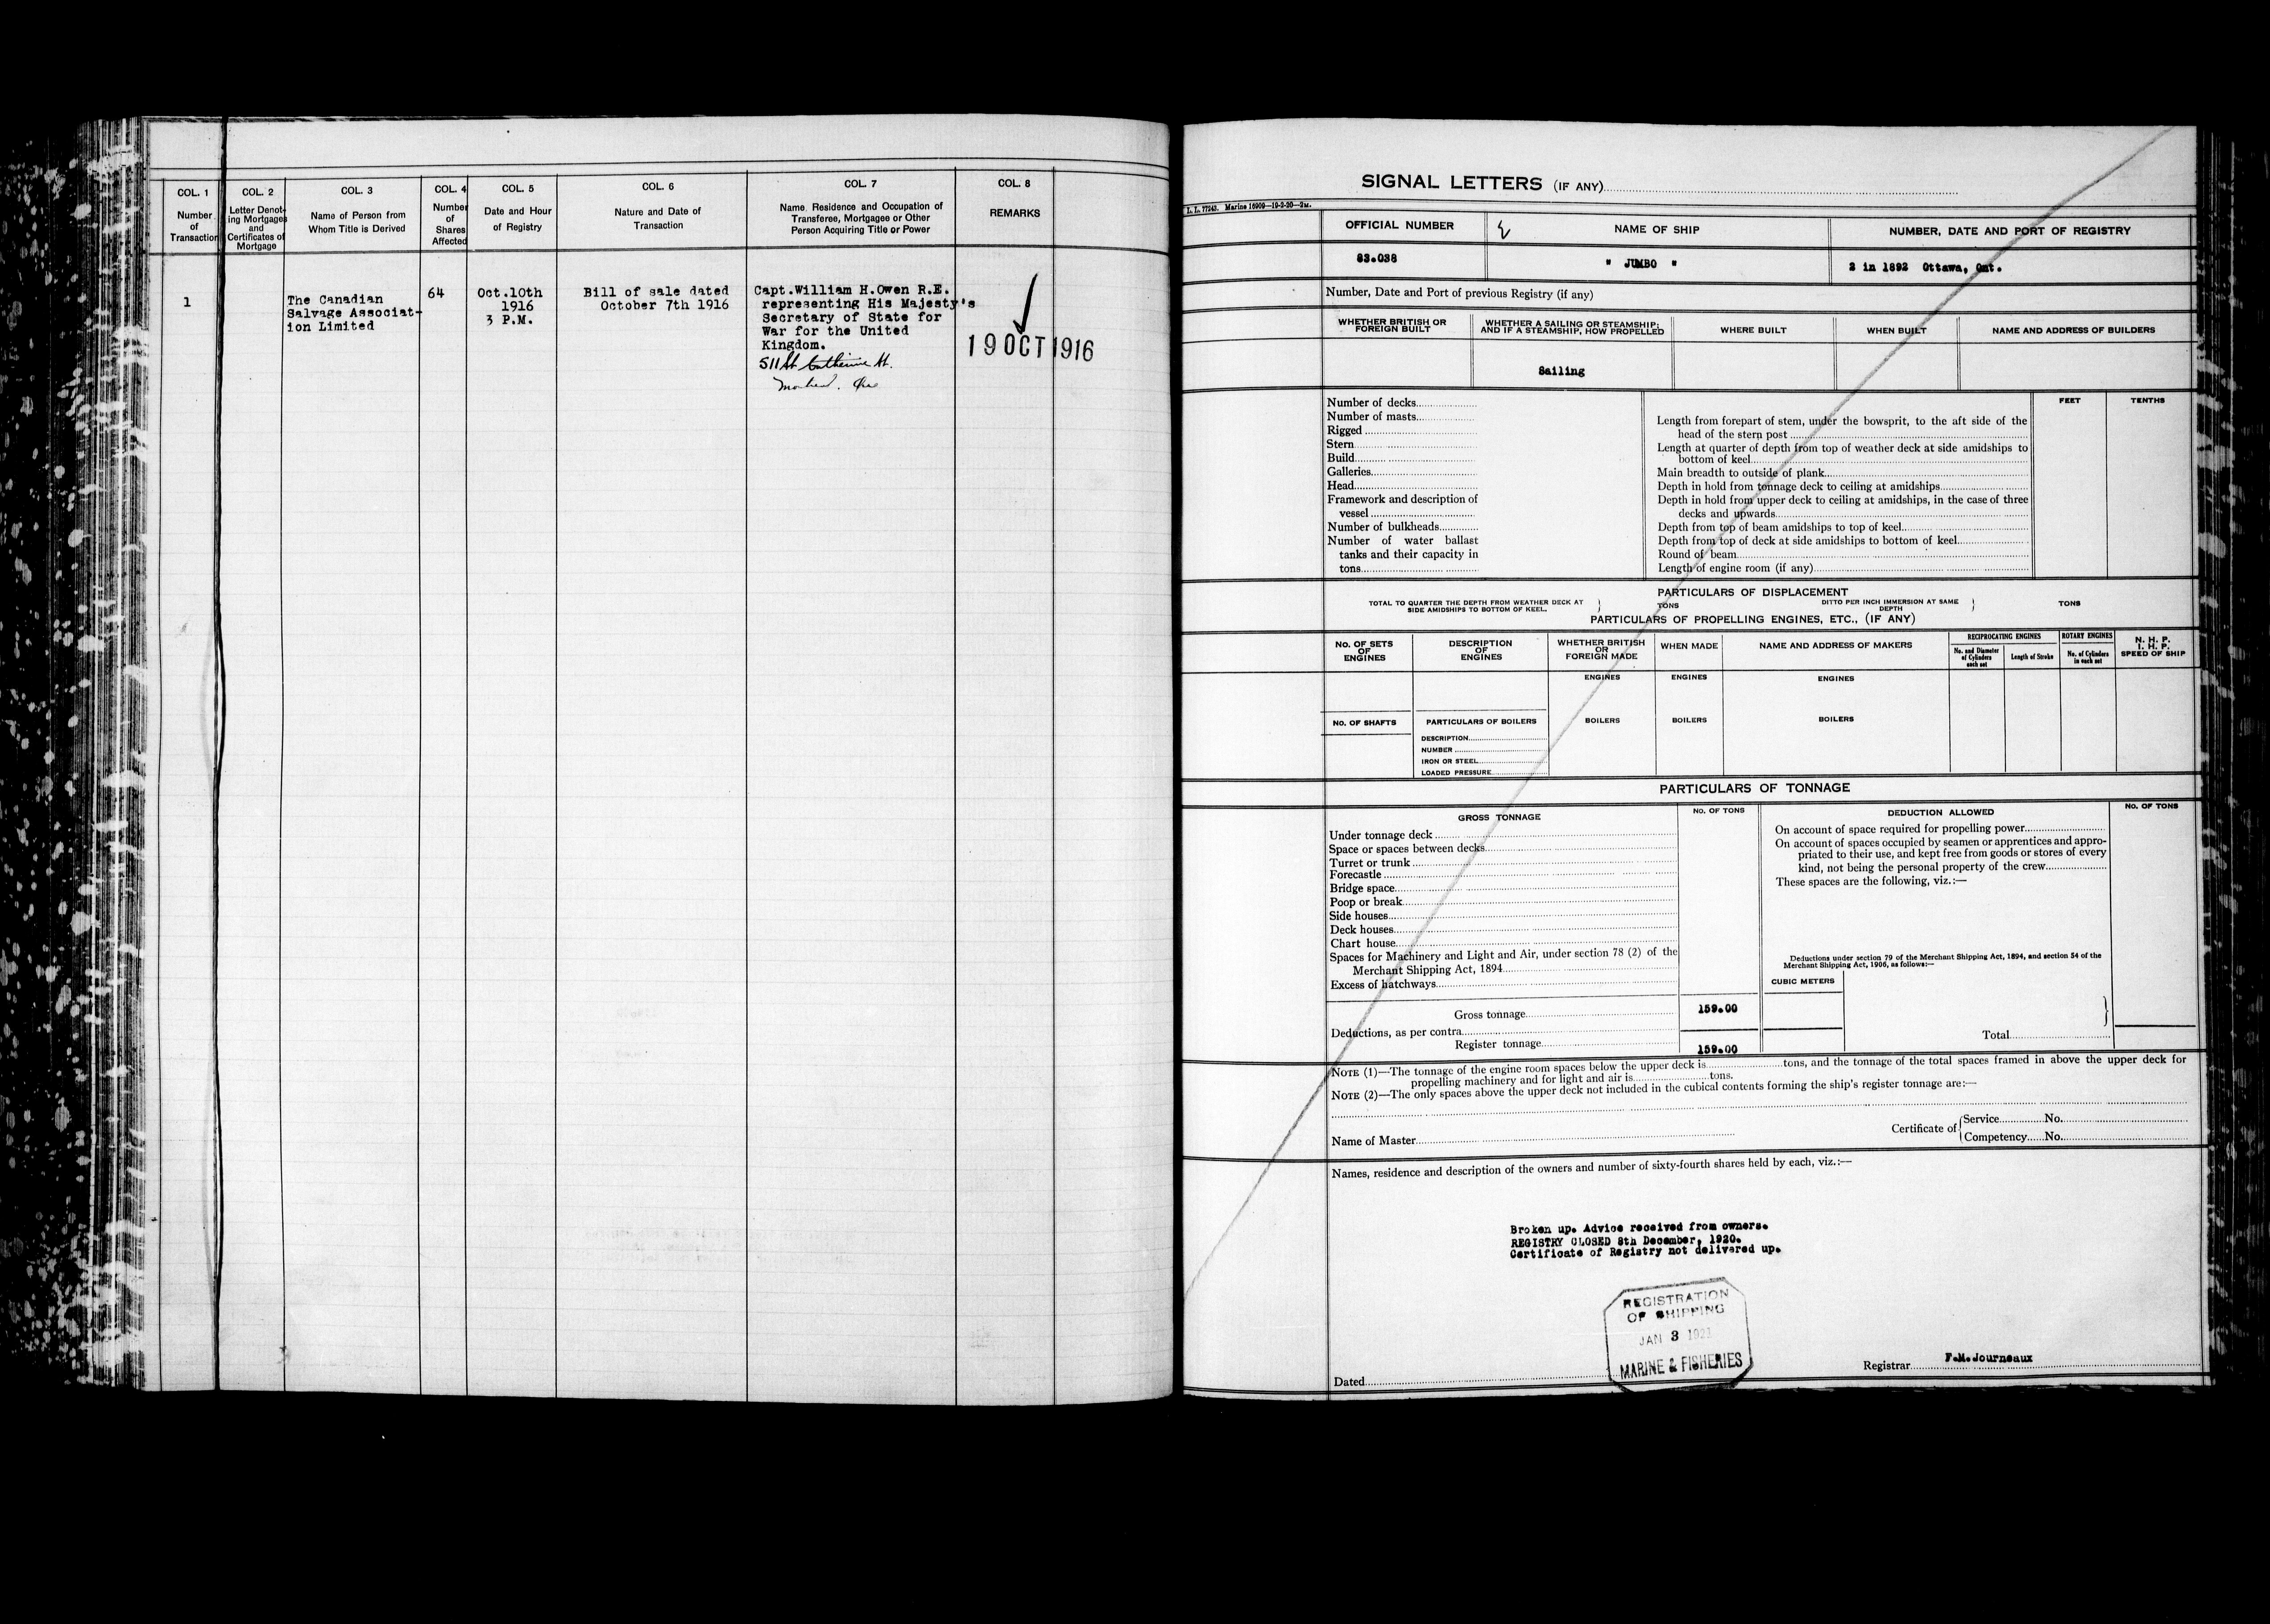 COL. 1
Number
of
Transaction
COL. 2
Letter Denot-
ing Mortgages
and
Certificates of
Mortgage
COL. 3
Name of Person from
Whom Title is Derived
COL. 4
Number
of
Shares
Affected
COL. 5
Date and Hour
of Registry
COL. 6
Nature and Date of
Transaction
COL. 7
Name, Residence and Occupation of
Transferee, Mortgagee or Other
Person Acquiring Title or Power
COL. 8
REMARKS
1
The Canadian
Salvage Associat-
ion Limited
64
Oct.10th
1916
3 P.M.
Bill of sale dated
October 7th 1916
Capt.William H.Owen R.E.
representing His Majesty's
Secretary of State for
War for the United
Kingdom.
511 St Catherine St.
Montreal. Que
19 OCT 1916
SIGNAL LETTERS (IF ANY)
L. L. 77243. Marine 16909—19-2-20—2M.
OFFICIAL NUMBER
NAME OF SHIP
NUMBER, DATE AND PORT OF REGISTRY
83.038
" JUMBO "
2 in 1892 Ottawa, Ont.
Number, Date and Port of previous Registry (if any)
WHETHER BRITISH OR
FOREIGN BUILT
WHETHER A SAILING OR STEAMSHIP;
AND IF A STEAMSHIP, HOW PROPELLED
WHERE BUILT
WHEN BUILT
NAME AND ADDRESS OF BUILDERS
Sailing
Number of decks
Number of masts
Rigged
Stern
Build
Galleries
Head
Framework and description of
vessel
Number of bulkheads
Number of water ballast
tanks and their capacity in
tons
FEET
TENTHS
Length from forepart of stem, under the bowsprit, to the aft side of the
head of the stern post
Length at quarter of depth from top of weather deck at side amidships to
bottom of keel
Main breadth to outside of plank
Depth in hold from tonnage deck to ceiling at amidships
Depth in hold from upper deck to ceiling at amidships, in the case of three
decks and upwards
Depth from top of beam amidships to top of keel
Depth from top of deck at side amidships to bottom of keel
Round of beam
Length of engine room (if any)
PARTICULARS OF DISPLACEMENT
TOTAL TO QUARTER THE DEPTH FROM WEATHER DECK AT
SIDE AMIDSHIPS TO BOTTOM OF KEEL.
TONS
DITTO PER INCH IMMERSION AT SAME
DEPTH
TONS
PARTICULARS OF PROPELLING ENGINES, ETC., (IF ANY)
NO. OF SETS
OF
ENGINES
DESCRIPTION
OF
ENGINES
WHETHER BRITISH
OR
FOREIGN MADE
WHEN MADE
NAME AND ADDRESS OF MAKERS
RECIPROCATING ENGINES
No. and Diameter
of Cylinders
each set
Length of Stroke
ROTARY ENGINES
No. of Cylinders
in each set
N. H. P.
I. H. P.
SPEED OF SHIP
ENGINES
ENGINES
ENGINES
NO. OF SHAFTS
PARTICULARS OF BOILERS
BOILERS
BOILERS
BOILERS
DESCRIPTION
NUMBER
IRON OR STEEL
LOADED PRESSURE
PARTICULARS OF TONNAGE
GROSS TONNAGE
NO. OF TONS
DEDUCTION ALLOWED
NO. OF TONS
Under tonnage deck
Space or spaces between decks
Turret or trunk
Forecastle
Bridge space
Poop or break
Side houses
Deck houses
Chart house
Spaces for Machinery and Light and Air, under section 78 (2) of the
Merchant Shipping Act, 1894
Excess of hatchways
Gross tonnage
159.00
Deductions, as per contra
Register tonnage
159.00
On account of space required for propelling power
On account of spaces occupied by seamen or apprentices and appro-
priated to their use, and kept free from goods or stores of every
kind, not being the personal property of the crew
These spaces are the following, viz.:—
Deductions under section 79 of the Merchant Shipping Act, 1894, and section 54 of the
Merchant Shipping Act, 1906, as follows:—
CUBIC METERS
Total
NOTE (1)—The tonnage of the engine room spaces below the upper deck is tons, and the tonnage of the total spaces framed in above the upper deck for
propelling machinery and for light and air is tons.
NOTE (2)—The only spaces above the upper deck not included in the cubical contents forming the ship's register tonnage are:—
Name of Master
Certificate of
Service No.
Competency No.
Names, residence and description of the owners and number of sixty-fourth shares held by each, viz.:—
Broken up. Advice received from owners.
REGISTRY CLOSED 8th December, 1920.
Certificate of Registry not delivered up.
REGISTRATION
OF SHIPPING
JAN 3 1921
MARINE & FISHERIES
Dated
Registrar F.M.Journeaux